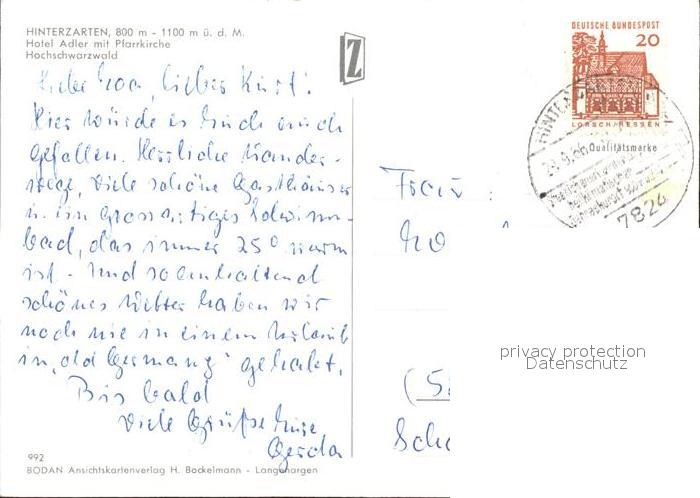 HINTERZARTEN, 800 m - 1100 m ü. d. M.
Hotel Adler mit Pfarrkirche
Hochschwarzwald
Z
DEUTSCHE BUNDESPOST
20
LORSCH/HESSEN
Qualitätsmarke
7824
lieber Kurt!
Hier würde es Euch auch
gefallen. Herrliche Wander-
wege, viele schöne Gasthäuser
u. ein grossartiges Schwimm-
bad, das immer 25° warm
ist. Und so anhaltend
schönes Wetter haben wir
noch nie in einem Urlaub
in „old Germany" gehabt.
Bis bald
Viele Grüße Eure
Gerda
Frau
992
BODAN Ansichtskartenverlag H. Bockelmann - Langenargen
privacy protection
Datenschutz